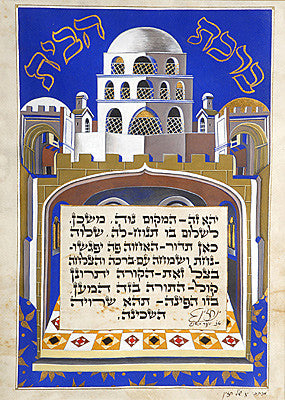 ברכת הבית
יהא זה-המקום נוה, משכן,
לשלום בו תנוח-לה, שלוה
כאן תדור-האחוה פה יפגשו.
נחת ושמחה עם-ברכה והצלחה
בצל זאת-הקורה יתרונן
קול-התורה בזה המעון
בזו הפינה- תהא שרויה
השכינה.